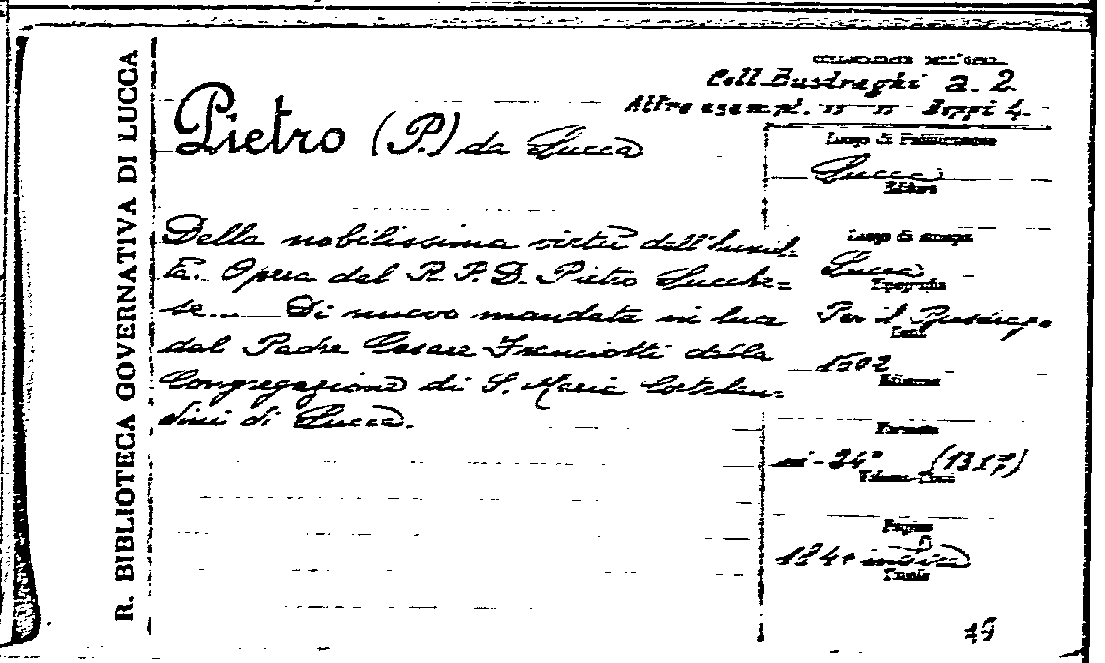 R. BIBLIOTECA GOVERNATIVA DI LUCCA
COLLOCAZIONE DELL'OPERA
Coll. Busdraghi a. 2
Altro esempl.
Pietro (P.) da Lucca
Luogo di Pubblicazione
Lucca
Editore
Della nobilissima virtù dell'humil-
tà. Opera del R. P. D. Pietro Lucche=
se... Di nuovo mandata in luce
dal Padre Cesare Franciotti della
Congregazione di S. Maria Cortelan=
dini di Lucca.
Luogo di stampa
Lucca
Tipografia
Per il Busdrago
Edizione
Formato
in-24° (13x7)
Pagine
184+indice
19